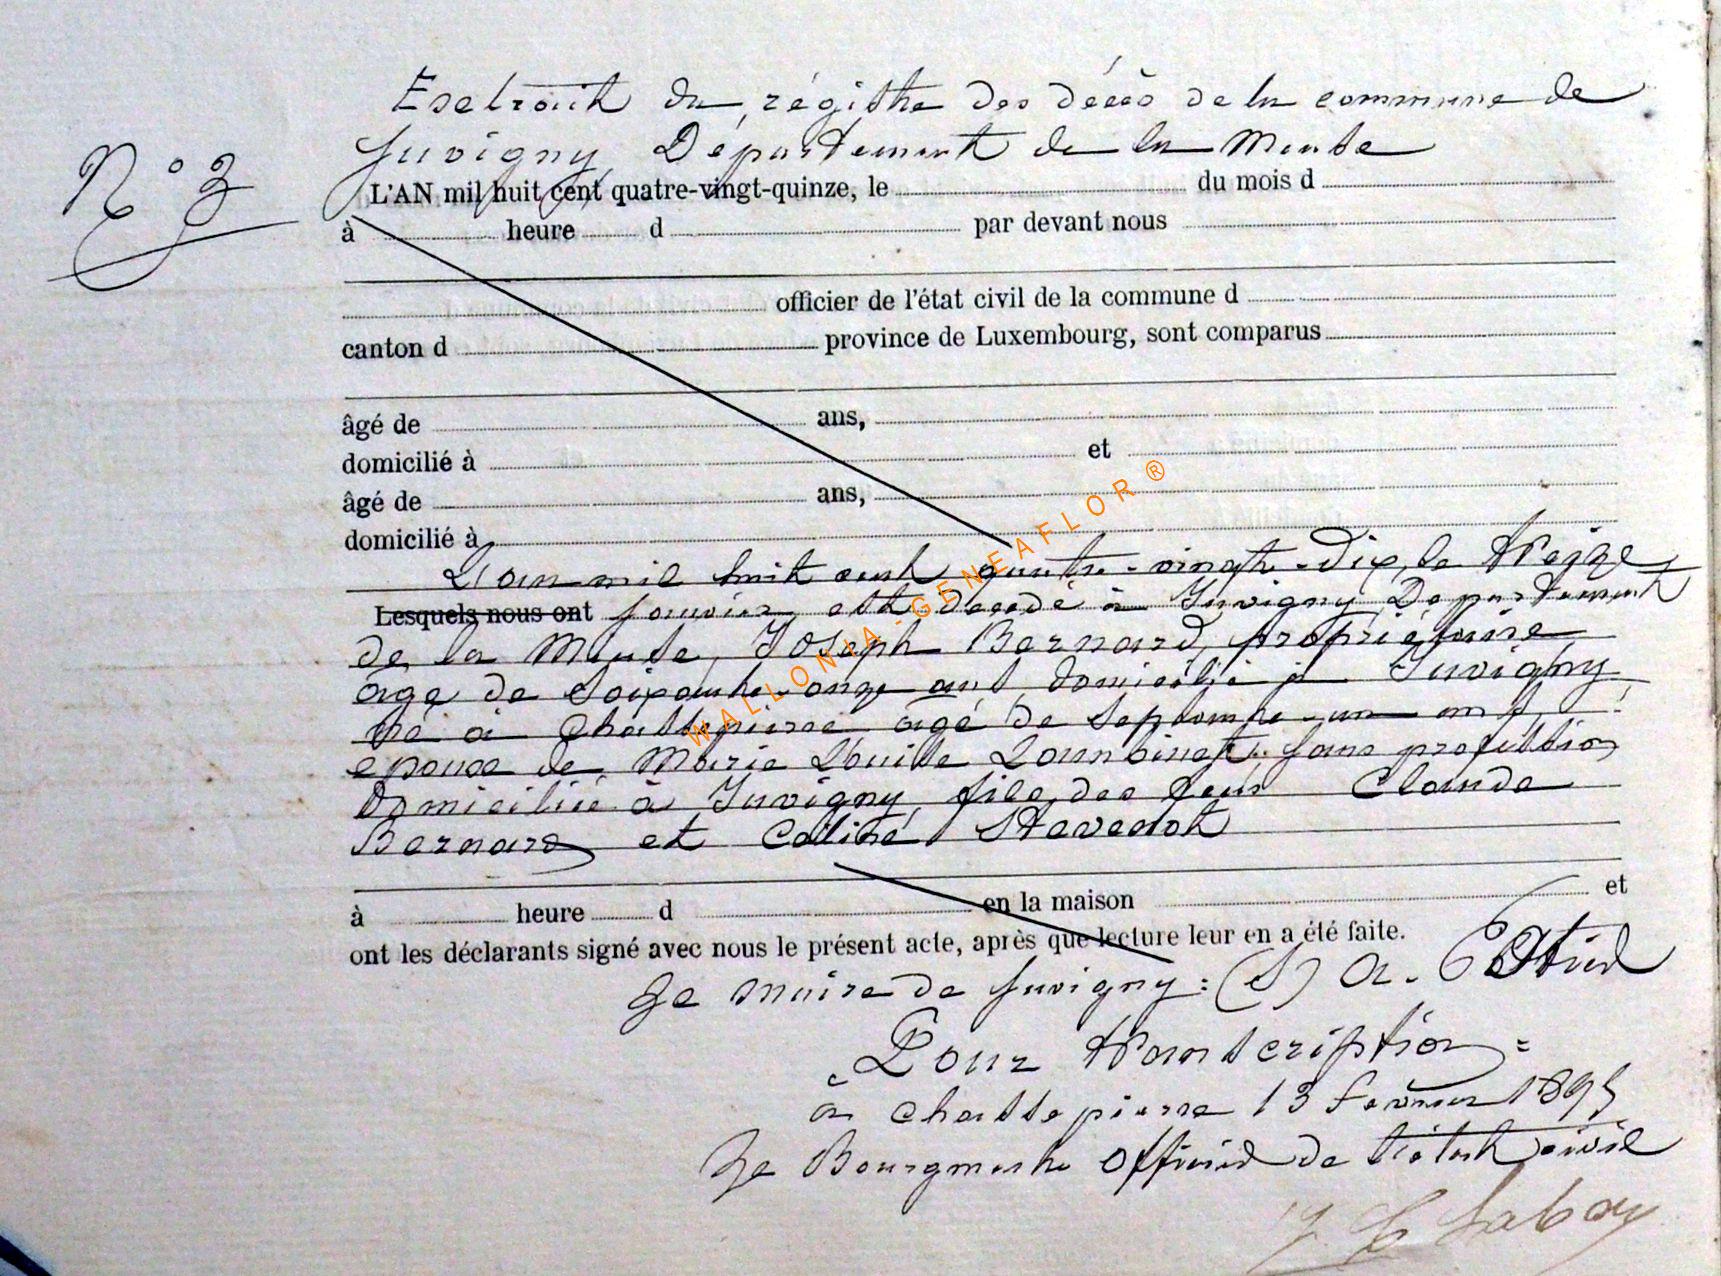 Extrait du régistre des décès de la commune de
Juvigny Département de la Meuse
N° 3
L'AN mil huit cent quatre-vingt-quinze, le du mois d
à heure d par devant nous
officier de l'état civil de la commune d
canton d province de Luxembourg, sont comparus
âgé de ans,
domicilié à et
âgé de ans,
domicilié à
L'an mil huit cent quatre-vingt-dix, le treize
Lesquels nous ont janvier, est décedé à Juvigny Département
de la Meuse, Joseph Bernard, propriétaire
âgé de soixante-onze ans, domicilié à Juvigny
né à Chassepierre âgé de septante-un ans,
epoux de Marie Louise sans profession
domiciliée à Juvigny, fils des feus Claude
Bernard et Stevenot
à heure d en la maison et
ont les déclarants signé avec nous le présent acte, après que lecture leur en a été faite.
Le maire de Juvigny : (S) A.
Pour transcription =
à Chassepierre 13 février 1895
Le Bourgmestre Officier de l'état civil
WALLONIA-GENEAFLOR ®